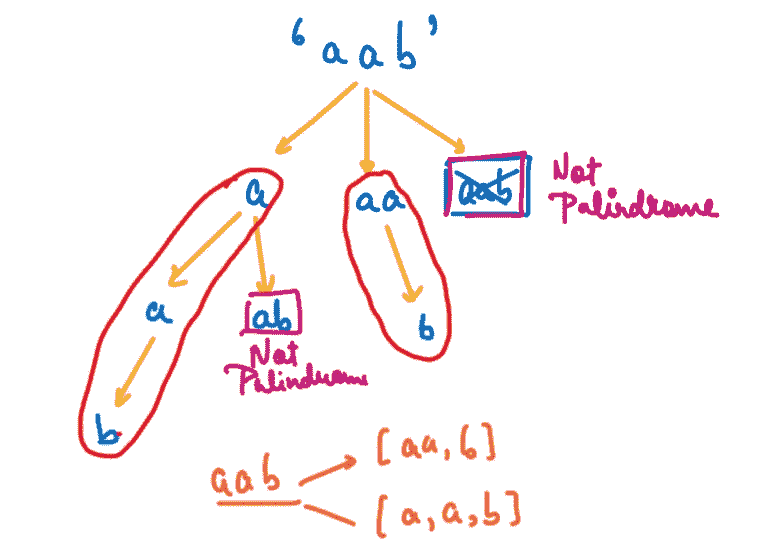 ‘aab’
a
aa
aab
Not
Palindrome
a
ab
b
Not
Palindrome
b
aab
[aa, b]
[a, a, b]